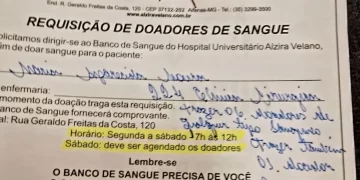 End. R. Geraldo Freitas da Costa, 120 - CEP 37132-202 Alfenas-MG Tel.: (35) 3299-3500
www.alziravelano.com.br
REQUISIÇÃO DE DOADORES DE SANGUE
olicitamos dirigir-se ao Banco de Sangue do Hospital Universitário Alzira Velano,
im de doar sangue para o paciente:
Maria Aparecida
enfermaria: 224 Clínica Cirúrgica
momento da doação traga esta requisição. Trazer 06 doadores de
Banco de Sangue fornecerá comprovante. Qualquer tipo Sanguíneo
cal: Rua Geraldo Freitas da Costa, 120 Trazer também
Horário: Segunda a sábado - 7h às 12h
Sábado: deve ser agendado os doadores 01
Lembre-se
O BANCO DE SANGUE PRECISA DE VOCÊ